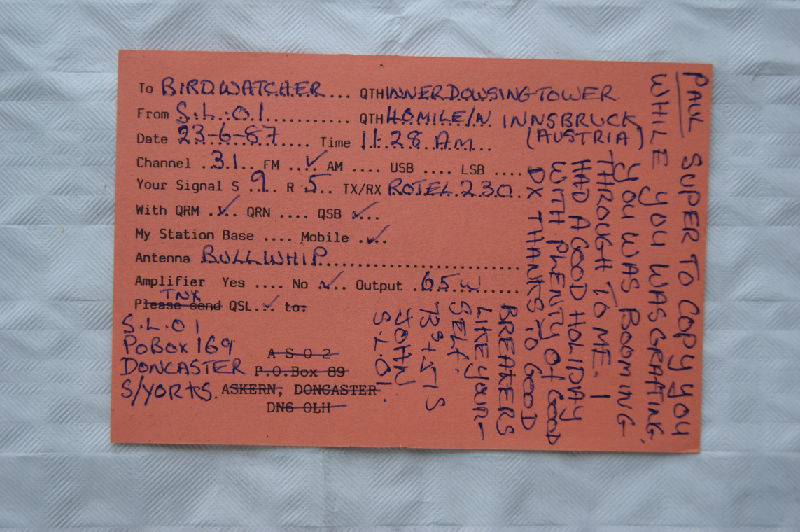 To BIRDWATCHER ... QTH INNER DOWSING TOWER
From S.L.01 .......... QTH 40 MILE/N INNSBRUCK
(AUSTRIA)
Date 23-6-87 .... Time 11.28 AM....
Channel .31.. FM ..✓ AM .... USB .... LSB ....
Your Signal S .9.. R .5.. TX/RX ROTEL 230.
With QRM .✓ QRN .... QSB ✓..
My Station Base .... Mobile .✓.
Antenna BULLWHIP........................
Amplifier Yes .... No ✓.. Output .65.W.....
TNX
Please send QSL..✓ to:
S.L.01
PO Box 169
DONCASTER
S/YORKS.
A S O 2
P.O.Box 89
ASKERN, DONCASTER
DN6 0LH
PAUL SUPER TO COPY YOU
WHILE YOU WAS GRAFTING.
YOU WAS BOOMING
THROUGH TO ME. I
HAD A GOOD HOLIDAY
WITH PLENTY OF GOOD
DX THANKS TO GOOD
BREAKERS
LIKE YOUR-
SELF.
73s + 51s
JOHN
S-L01.